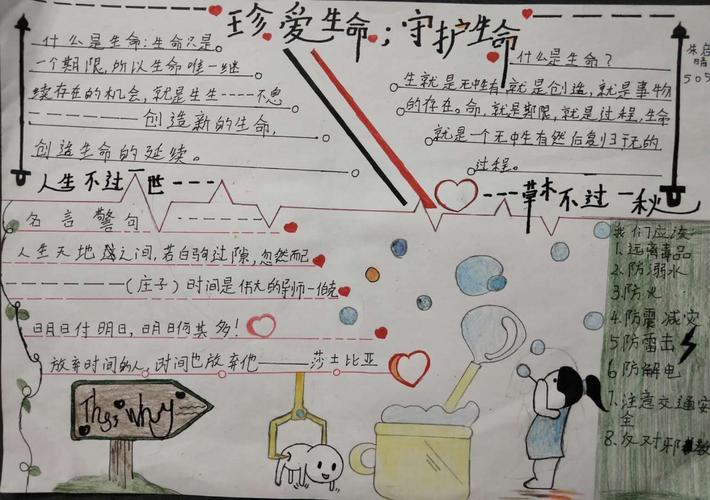 珍爱生命；守护生命
朱启晴
505
什么是生命：生命只是
一个期限，所以生命唯一继
续存在的机会，就是生生----不息
--------创造新的生命，
创造生命的延续。
人生不过一世----
什么是生命？
生就是无中生有，就是创造，就是事物
的存在。命，就是期限，就是过程，生命
就是一个无中生有然后复归于无的
过程。
---草木不过一秋
名言警句--------
人生天地之间，若白驹过隙，忽然而已
--------(庄子)时间是伟大的导师—伯克
明日付明日，明日何其多！
放弃时间的人，时间也放弃他----莎士比亚
Thgs Why
我们应该
1.远离毒品
2.防溺水
3.防火
4.防震减灾
5.防雷击
6.防触电
7.注意交通安
全
8.反对邪教